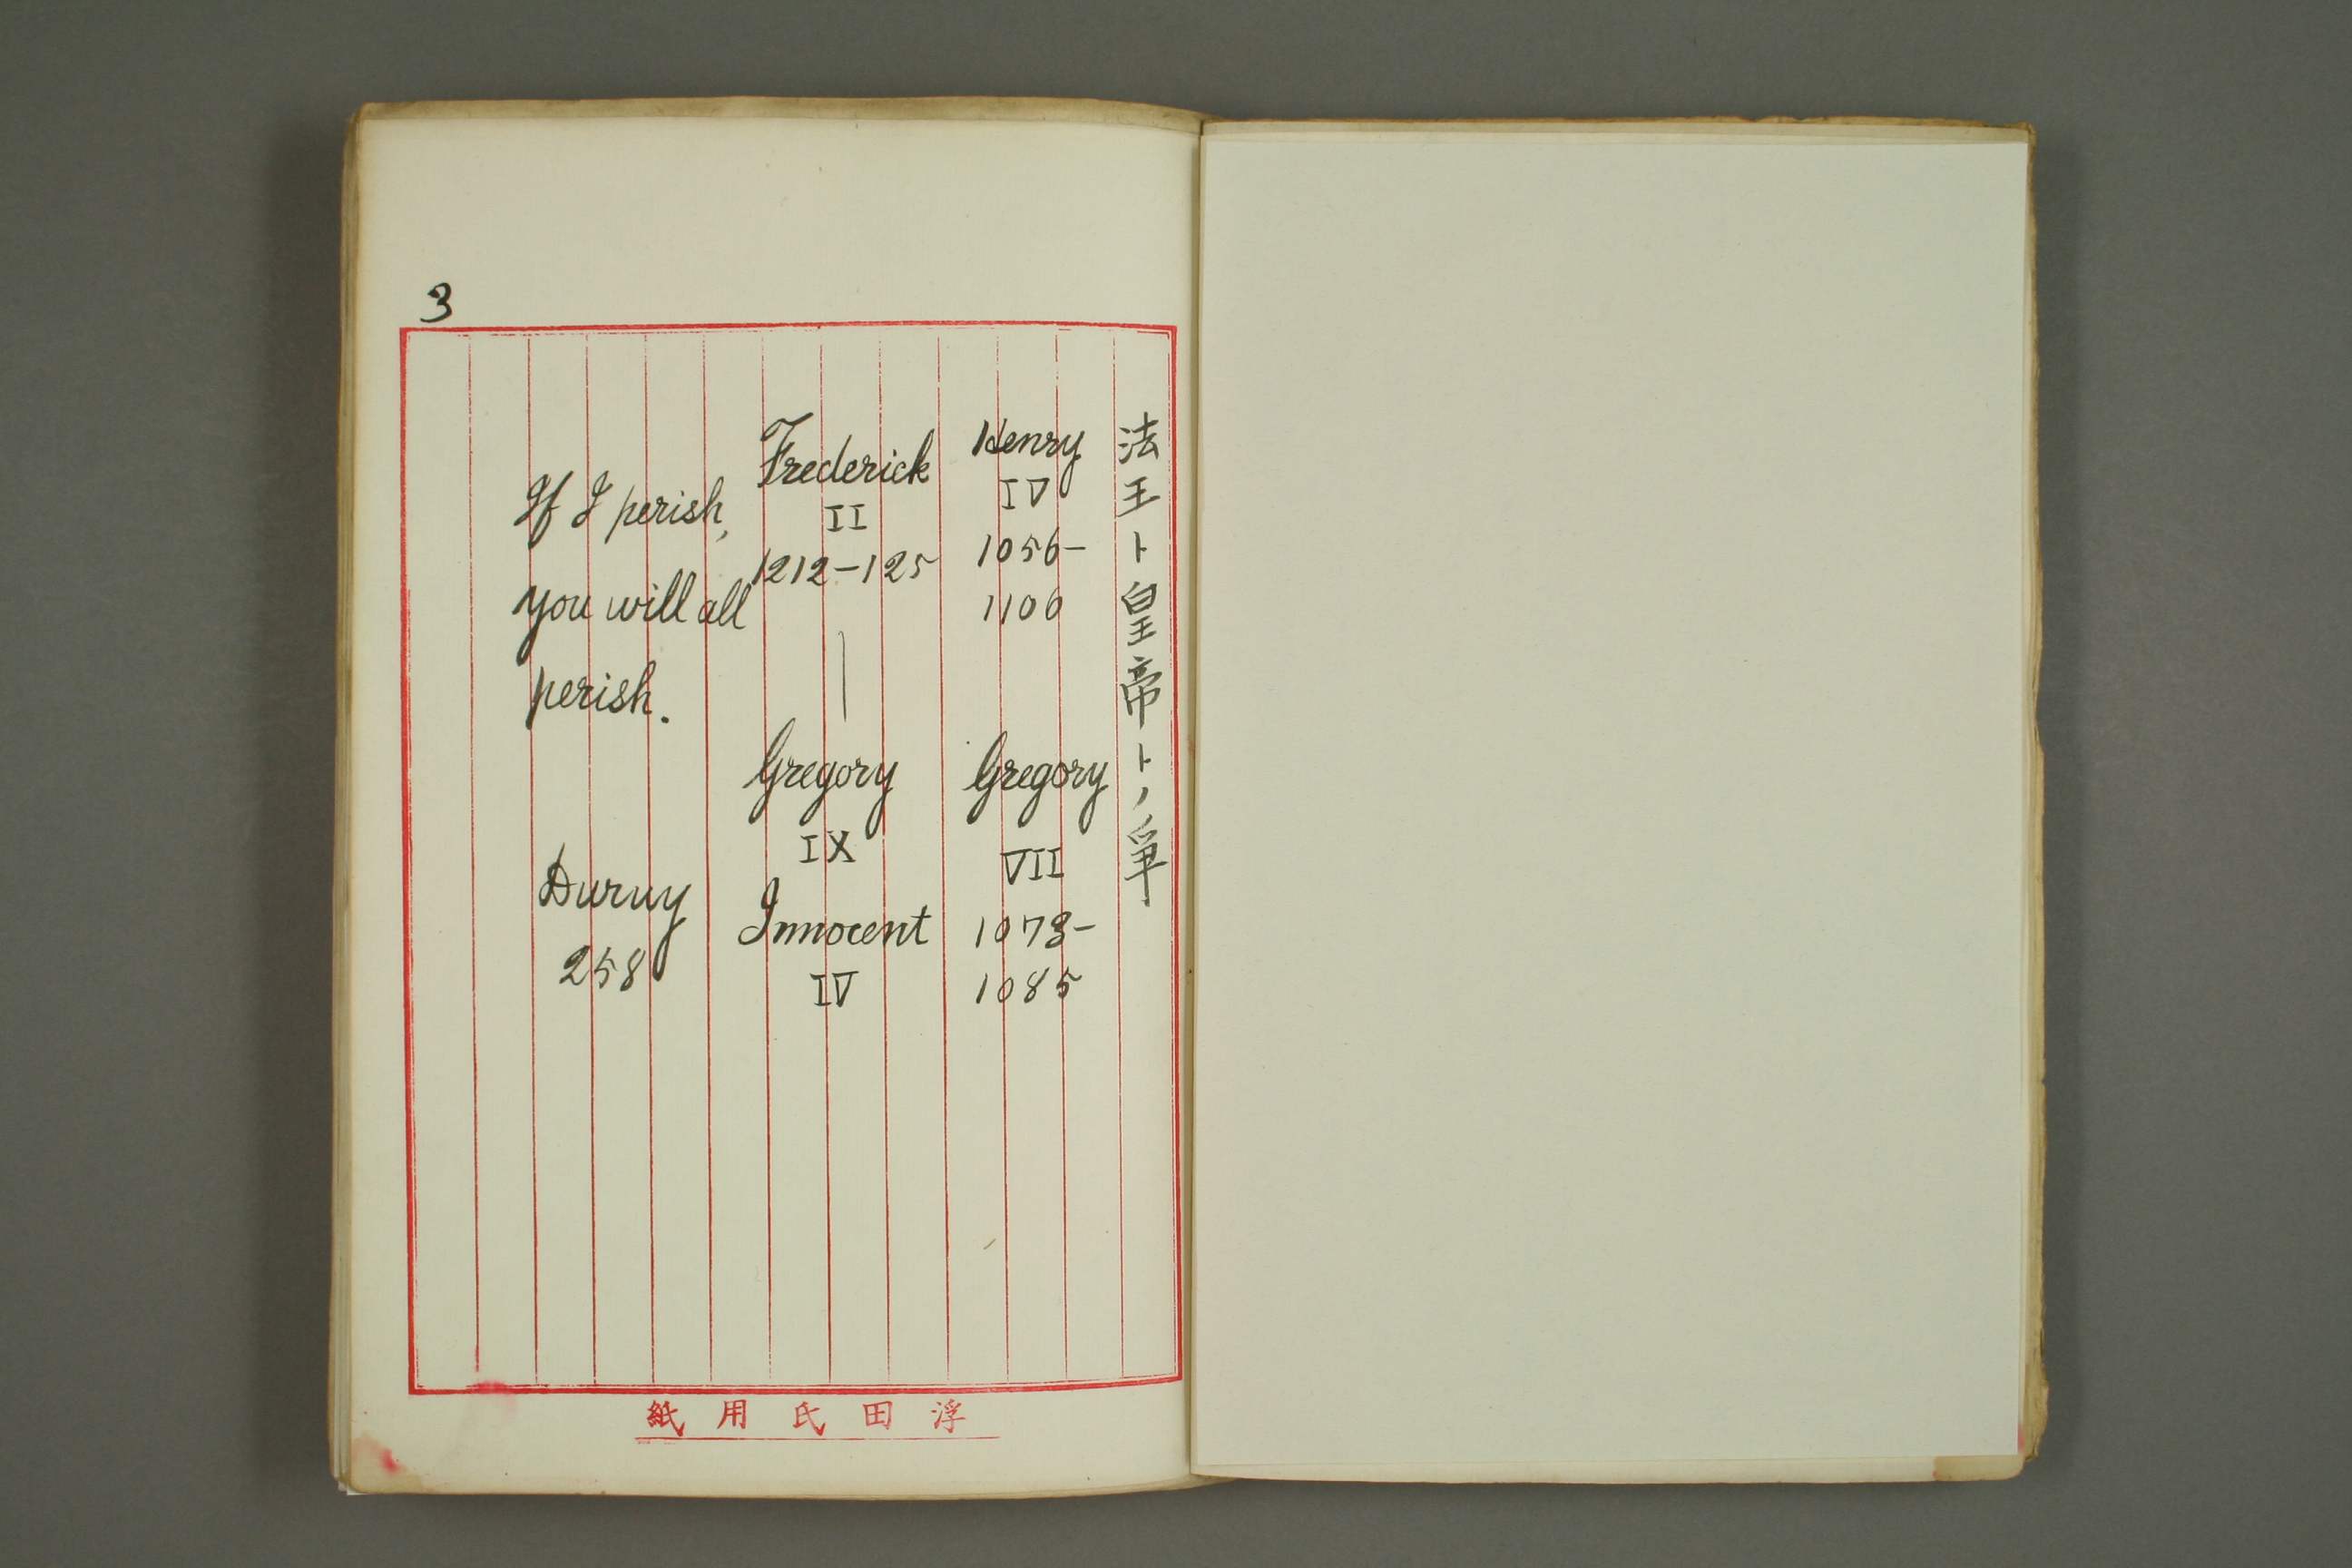 3
法王ト皇帝トノ争
Henry
IV
1056-
1106
Gregory
VII
1073-
1085
Frederick
II
1212-125
Gregory
IX
Innocent
IV
If I perish,
you will all
perish.
Duruy
258
浮田氏用紙